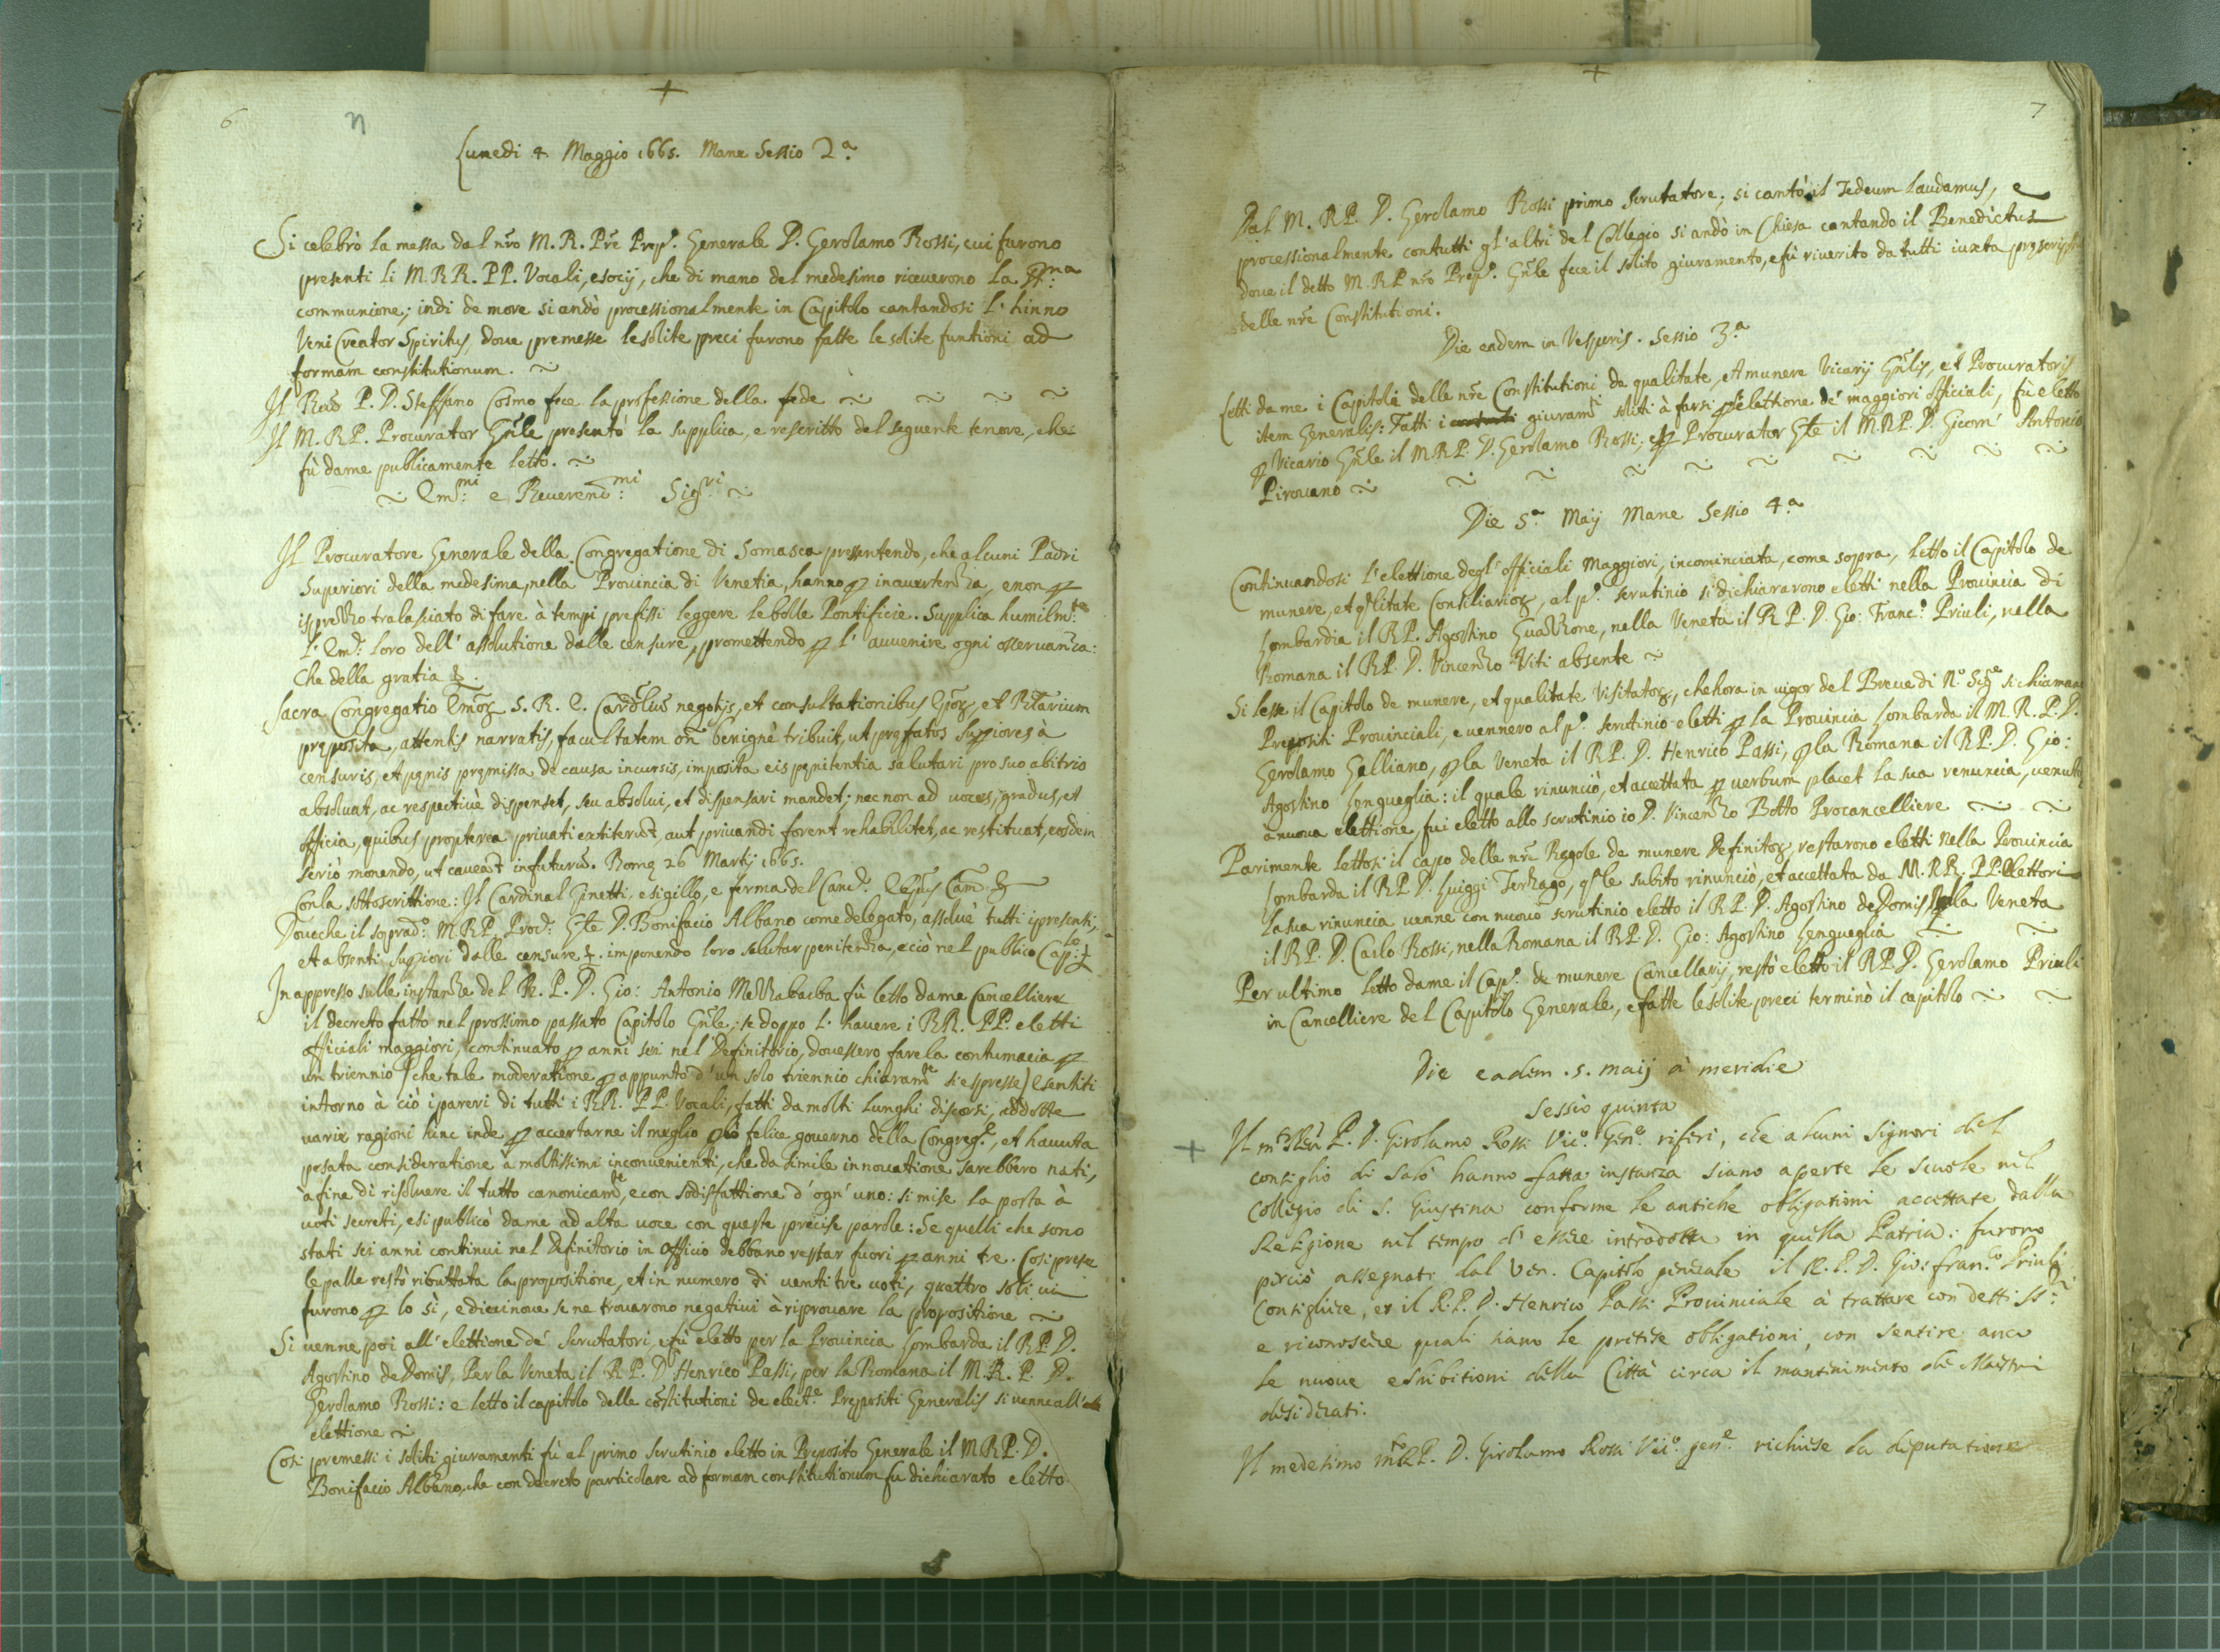 +
6
n
Lunedi 4 Maggio 1665. Mane Sessio 2.a
Si celebrò la messa dal nro M. R. Pre Prep.o Generale D. Gerolamo Rossi, cui furono
presenti li M. RR. PP. Vocali, e socij, che di mano del medesimo riceuerono la
communione; indi de more si andò processionalmente in Capitolo cantandosi l'hinno
Veni Creator Spiritus, doue premesse le solite preci furono fatte le solite funtioni ad
formam constitutionum.
Il P. D. Steffano Cosmo fece la professione della fede
Il M. RP. Procurator Gnle presentò la supplica, e rescritto del seguente tenore, che
fù da me publicamente letto.
Em.mi e Reuerend.mi Sig.ri
Il Procuratore Generale della Congregatione di Somasca presentendo, che alcuni Padri
Superiori della medesima, nella Prouincia di Venetia, hanno p inauertenza, e non p
isprezzo tralasciato di fare à tempi prefissi leggere le bolle Pontificie. Supplica humilm.te
l'Em.e loro dell'assolutione dalle censure, promettendo p l'auuenire ogni osseruanza:
Che della gratia &.
Sacra Congregatio S. R. E. negotijs, et consultationibus et
preposita, attentis narratis, facultatem benignè tribuit, ut prefatos Supiores à
censuris, et penis premissa de causa incursis, imposita eis penitentia salutari pro suo abitrio
absoluat, ac respectiuè dispenset, seu absolui, et dispensari mandet; nec non ad uoces, gradus, et
officia, quibus propterea priuati extiterut, aut priuandi forent rehabilitet, ac restituat, eosdem
seriò monendo, ut caueat in futurum. Rome 26 Martij 1665.
Con la sottoscrittione: Il Cardinal Ginetti, e sigillo, e ferma del
Doueche il soprad.o M.RP. Proc.r Gle D. Bonifacio Albano come delegato, assoluè tutti i presenti,
et absenti Supiori dalle censure &. imponendo loro salutar penitenza, e ciò nel publico Cap.lo
In appresso sulle instanze del R. P. D. Gio: Antonio Mezzabarba fù letto da me Cancelliere
il decreto fatto nel prossimo passato Capitolo Gnle; se doppo l'hauere i RR. PP. eletti
officiali maggiori, continuato p anni sei nel Definitorio, douessero fare la contumacia p
un triennio (che tale moderatione p appunto d'un solo triennio chiaram.te si espresse) e sentiti
intorno à ciò i pareri di tutti i RR. PP. Vocali, fatti da molti lunghi discorsi, addotte
uarie ragioni hinc inde p accertarne il meglio p lo felice gouerno della Congreg.e, et hauuta
posata consideratione à moltissimi inconuenienti, che da simile innouatione sarebbero nati,
a fine di risoluere il tutto canonicam.te, e con sodisfattione d'ogn'uno: si mise la porta à
uoti secreti, e si publicò da me ad alta uoce con queste precise parole: Se quelli che sono
stati sei anni continui nel Definitorio in officio debbano restar fuori p anni tre. Cosi prese
le palle restò ributtata la propositione, et in numero di uentitre uoti, quattro soli ui
furono p lo sì, e dicinoue se ne trouarono negatiui à riprouare la propositione
Si uenne poi all'elettione de' Scrutatori, e fù eletto per la Prouincia Lombarda il R.P. D.
Agostino de Domis, Per la Veneta il R P. D. Henrico Passi, per la Romana il M. R. P. D.
Gerolamo Rossi: e letto il capitolo delle costitutioni de elect.e Prepositi Generalis si uenne all'
elettione
Cosi premessi i soliti giuramenti fù al primo scrutinio eletto in Preposito Generale il M.R P. D.
Bonifacio Albano, che con decreto particolare ad formam constitutionum fu dichiarato eletto
+
7
Dal M. RP. D. Gerolamo Rossi primo scrutatore; si cantò il Tedeum laudamus, e
processionalmente con tutti gl'altri del Collegio si andò in Chiesa cantando il Benedictus
doue il detto M. R P nro Prep.o Gnle fece il solito giuramento, e fù riuerito da tutti iuxta
delle nre Constitutioni.
Die eadem in Vesperis. Sessio 3.a
Letti da me i Capitoli delle nre Constitutioni de qualitate, et munere Vicarij Gnlis, et Procuratoris
item Generalis: Fatti i giuram.ti soliti à farsi p l'elettione de' maggiori officiali, fù eletto
p Vicario Gnle il M.R.P. D. Gerolamo Rossi, e p Procurator Gle il M.R.P. D. Antonio
Pirouano
Die 5.a Maij Mane Sessio 4.a
Continuandosi l'elettione degl'officiali Maggiori, incominciata, come sopra, letto il Capitolo de
munere, et qlitate Consiliarior, al p.o scrutinio si dichiararono eletti nella Prouincia di
Lombardia il RP. Agostino Guazzone, nella Veneta il R P. D. Gio: Franc.o Priuli, nella
Romana il RP. D. Vincenzo Viti absente
Si lesse il Capitolo de munere, et qualitate Visitator, che hora in uigor del Breue di N.o Sig.re si chiamano
Prepositi Prouinciali, e uennero al p.o scrutinio eletti p la Prouincia Lombarda il M. R. P. D.
Gerolamo Galliano, p la Veneta il R P. D. Henrico Passi, p la Romana il R P. D. Gio:
Agostino Lengueglia: il quale rinunciò, et accettata p uerbum placet la sua renuncia,
a nuoua elettione, fui eletto allo scrutinio io D. Vincenzo Botto Procancelliere
Parimente lettosi il capo delle nre Regole de munere Definitor, restarono eletti nella Prouincia
Lombarda il R P D. Luiggi Terzago, qle subito rinunciò, et accettata da M. RR. PP. Elettori
la sua rinuncia uenne con nuouo scrutinio eletto il R P. D. Agostino de Domis, Nella Veneta
il R P. D. Carlo Rossi, nella Romana il R P. D. Gio: Agostino Lengueglia
Per ultimo letto da me il Cap.o de munere Cancellarij, restò eletto il R P. D. Gerolamo Priuli
in Cancelliere del Capitolo Generale, e fatte le solite preci terminò il capitolo
Die eadem . 5. maij à meridie
Sessio quinta
+ Il P. D. Girolamo Rossi Vic.o Gen.e riferi, che alcuni Signori del
consiglio di Salò hanno fatta instanza siano aperte le scuole nel
Collegio di S. Giustina conforme le antiche obligationi accettate dalla
Religione nel tempo d'essere introdotta in quella Patria: furono
perciò assegnati dal Ven. Capitolo generale il R. P. D. Gio: Fran.co Priuli
Consigliere, et il R. P. D. Henrico Passi Prouinciale à trattare con detti SS.ri
e riconoscere quali siano le pretese obligationi, con sentire anco
le nuoue eshibitioni della Città circa il mantenimento de Maestri
desiderati.
Il medesimo P. D. Girolamo Rossi Vic.o gen.e richiese la deputatione